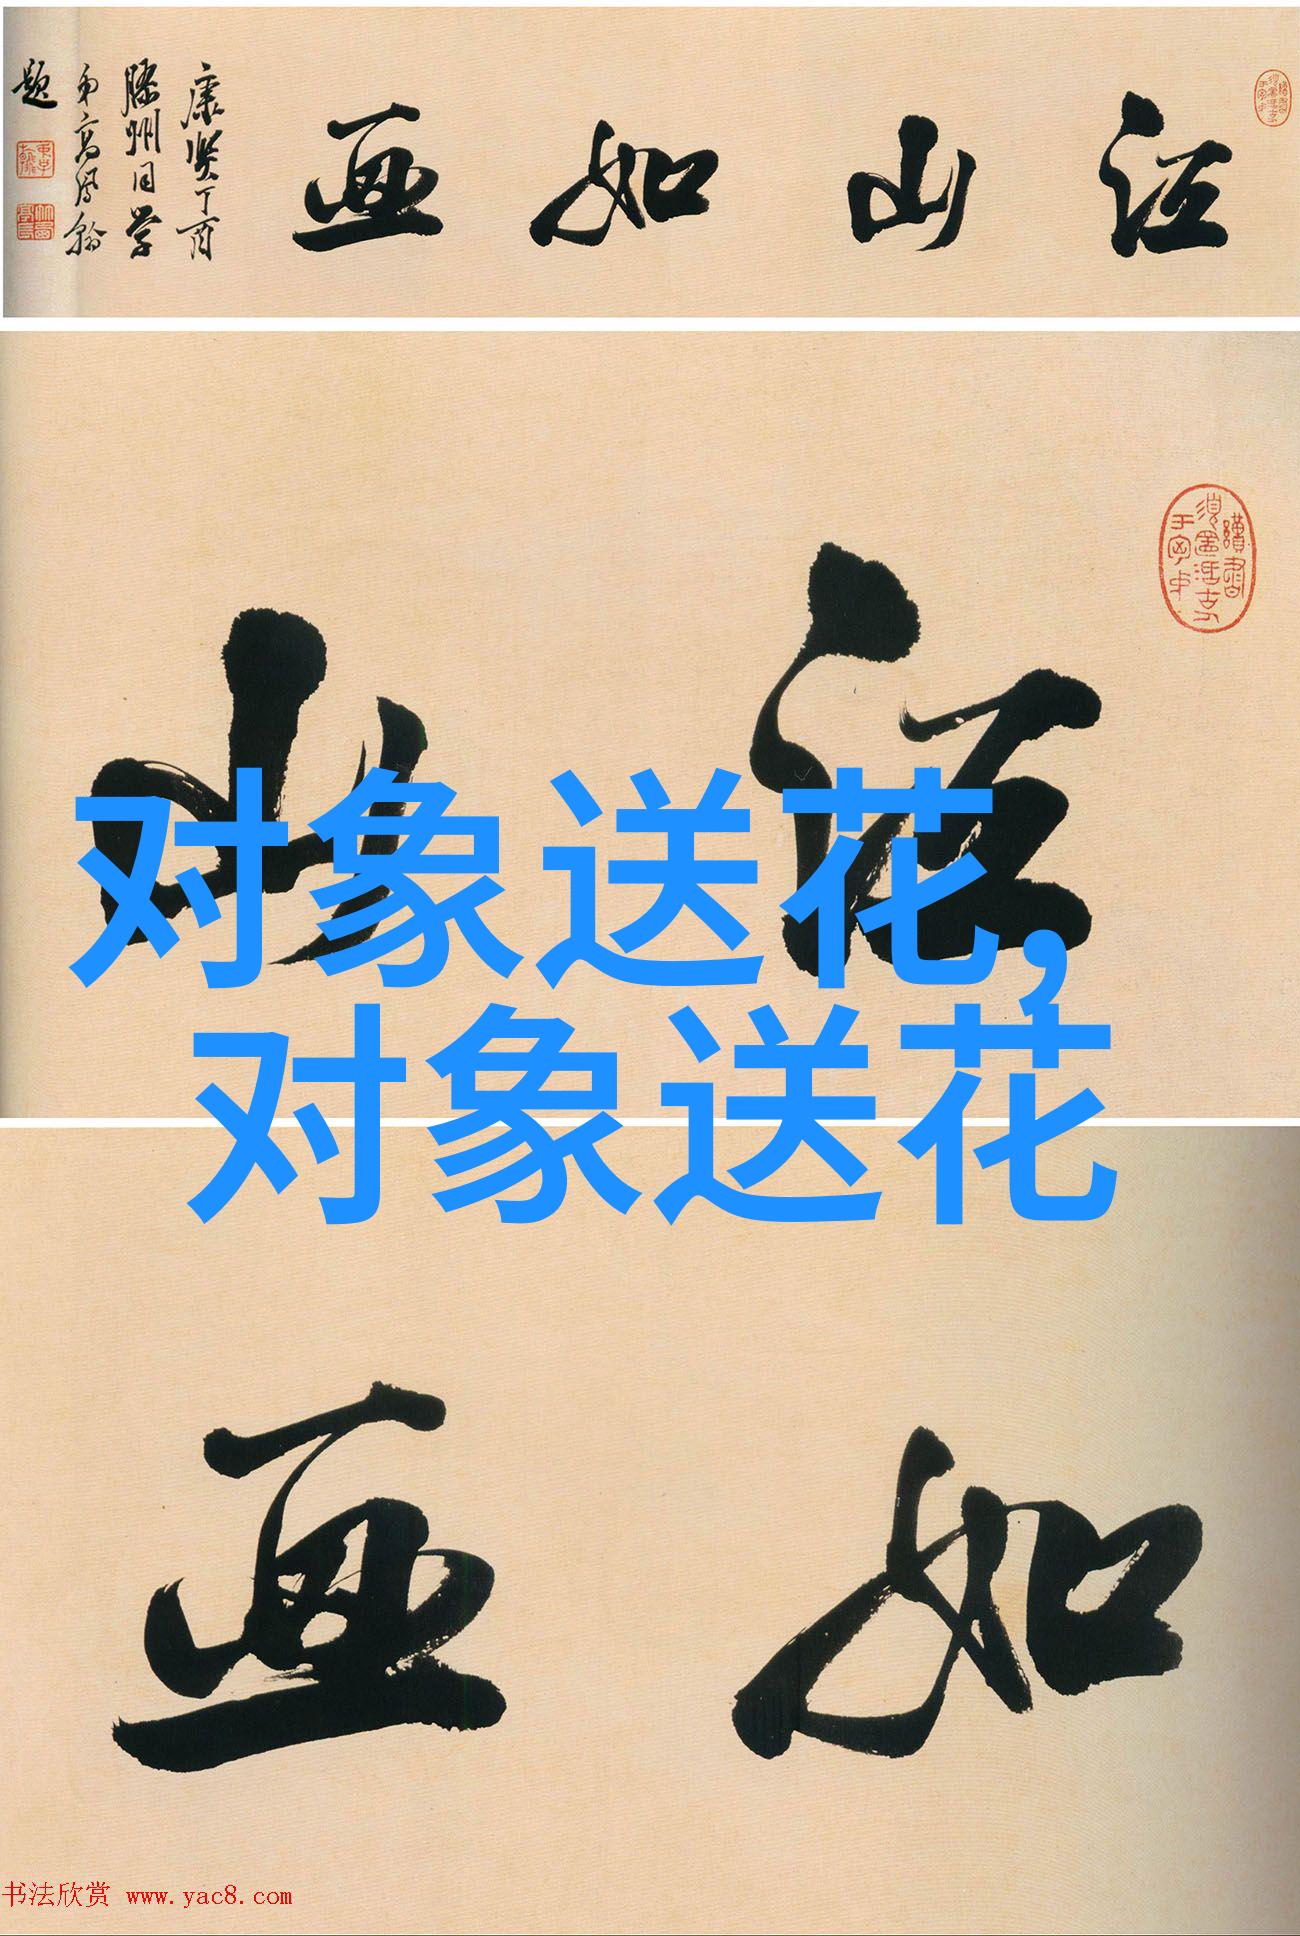 江山如画
康熙丁酉
滕州同学
弟高凤翰
题
江山
对象送花,
对象送花
如画
书法欣赏 www.yac8.com